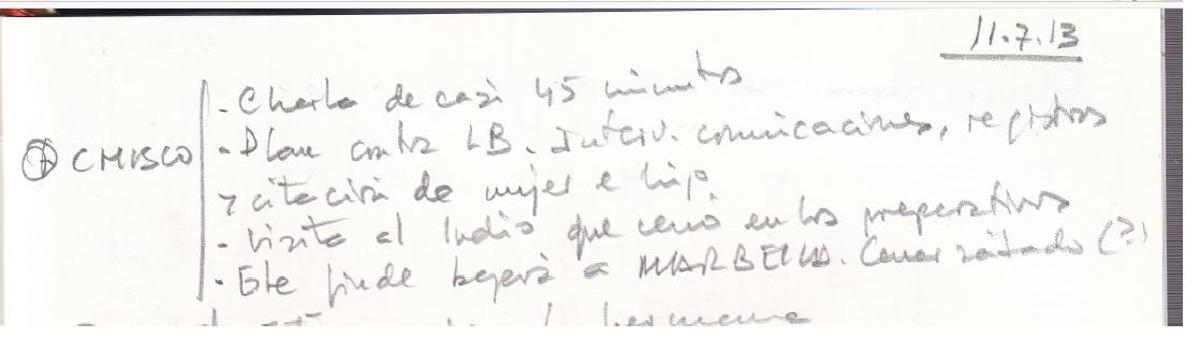 11.7.13
- Charla de casi 45 minutos
CHISCO - Plan contra LB. Interv. comunicaciones, registros
y citación de mujer e hijo.
- Visita al Indio que cenó en los preparativos
- Este finde bajará a MARBELLA. Cenar sábado (?)
hermana